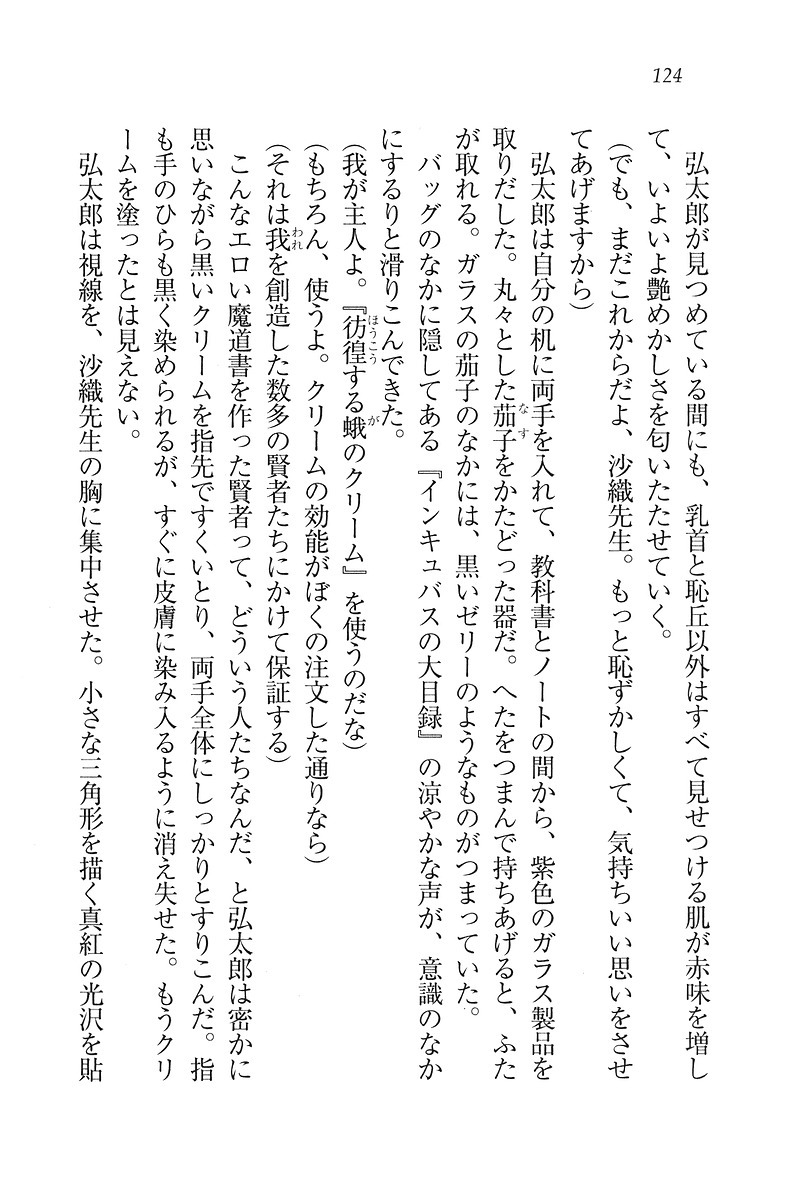 124
弘太郎が見つめている間にも、乳首と恥丘以外はすべて見せつける肌が赤味を増し
て、いよいよ艶めかしさを匂いたたせていく。
(でも、まだこれからだよ、沙織先生。もっと恥ずかしくて、気持ちいい思いをさせ
てあげますから)
弘太郎は自分の机に両手を入れて、教科書とノートの間から、紫色のガラス製品を
取りだした。丸々とした茄子をかたどった器だ。へたをつまんで持ちあげると、ふた
が取れる。ガラスの茄子のなかには、黒いゼリーのようなものがつまっていた。
バッグのなかに隠してある『インキュバスの大目録』の涼やかな声が、意識のなか
にするりと滑りこんできた。
(我が主人よ。『彷徨する蛾のクリーム』を使うのだな)
(もちろん、使うよ。クリームの効能がぼくの注文した通りなら)
(それは我を創造した数多の賢者たちにかけて保証する)
こんなエロい魔道書を作った賢者って、どういう人たちなんだ、と弘太郎は密かに
思いながら黒いクリームを指先ですくいとり、両手全体にしっかりとすりこんだ。指
も手のひらも黒く染められるが、すぐに皮膚に染み入るように消え失せた。もうクリ
ームを塗ったとは見えない。
弘太郎は視線を、沙織先生の胸に集中させた。小さな三角形を描く真紅の光沢を貼